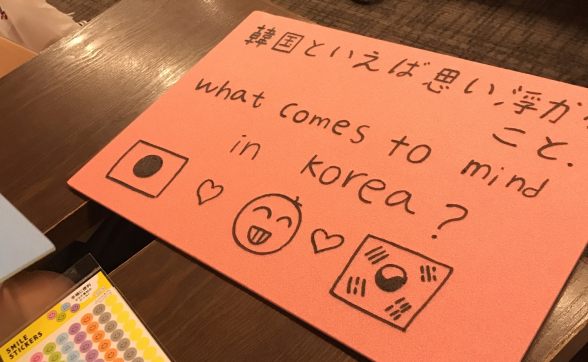 韓国といえば思い浮かぶ
こと.
what comes to mind
in korea?
SMILE
STICKERS